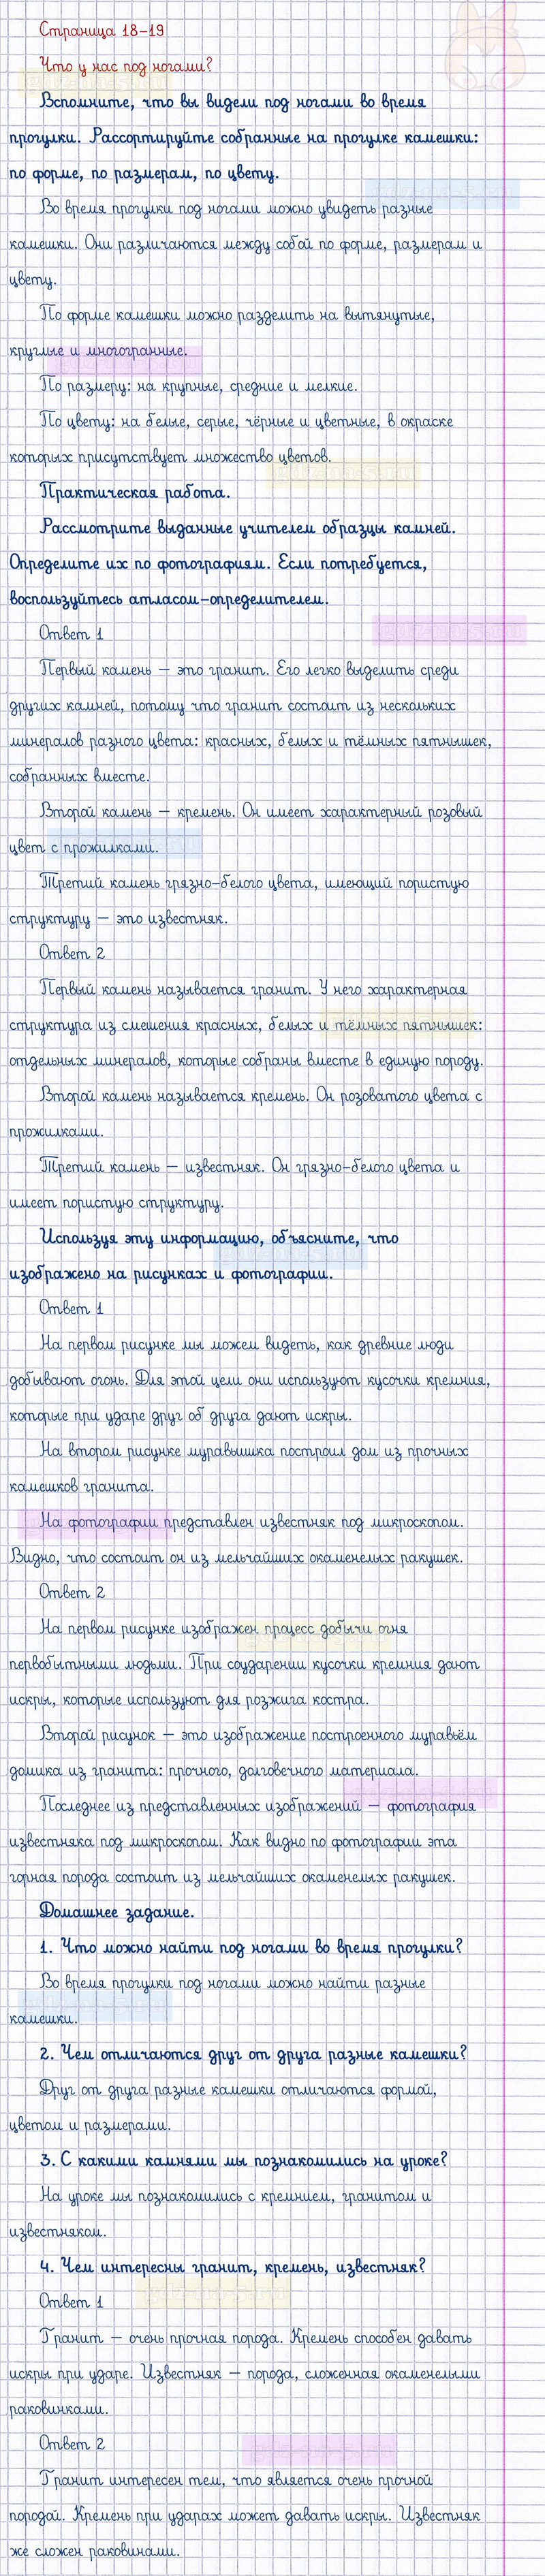 Страница 18-19
Что у нас под ногами?
Вспомните, что вы видели под ногами во время
прогулки. Рассортируйте собранные на прогулке камешки:
по форме, по размерам, по цвету.
Во время прогулки под ногами можно увидеть разные
камешки. Они различаются между собой по форме, размерам и
цвету.
По форме камешки можно разделить на вытянутые,
круглые и многогранные.
По размеру: на крупные, средние и мелкие.
По цвету: на белые, серые, чёрные и цветные, в окраске
которых присутствует множество цветов.
Практическая работа.
Рассмотрите выданные учителем образцы камней.
Определите их по фотографиям. Если потребуется,
воспользуйтесь атласом-определителем.
Ответ 1
Первый камень — это гранит. Его легко выделить среди
других камней, потому что гранит состоит из нескольких
минералов разного цвета: красных, белых и тёмных пятнышек,
собранных вместе.
Второй камень — кремень. Он имеет характерный розовый
цвет с прожилками.
Третий камень грязно-белого цвета, имеющий пористую
структуру — это известняк.
Ответ 2
Первый камень называется гранит. У него характерная
структура из смешения красных, белых и тёмных пятнышек:
отдельных минералов, которые собраны вместе в единую породу.
Второй камень называется кремень. Он розоватого цвета с
прожилками.
Третий камень — известняк. Он грязно-белого цвета и
имеет пористую структуру.
Используя эту информацию, объясните, что
изображено на рисунках и фотографии.
Ответ 1
На первом рисунке мы можем видеть, как древние люди
добывают огонь. Для этой цели они используют кусочки кремния,
которые при ударе друг об друга дают искры.
На втором рисунке муравьишка построил дом из прочных
камешков гранита.
На фотографии представлен известняк под микроскопом.
Видно, что состоит он из мельчайших окаменелых ракушек.
Ответ 2
На первом рисунке изображен процесс добычи огня
первобытными людьми. При соударении кусочки кремния дают
искры, которые используют для розжига костра.
Второй рисунок — это изображение построенного муравьём
домика из гранита: прочного, долговечного материала.
Последнее из представленных изображений — фотография
известняка под микроскопом. Как видно по фотографии эта
горная порода состоит из мельчайших окаменелых ракушек.
Домашнее задание.
1. Что можно найти под ногами во время прогулки?
Во время прогулки под ногами можно найти разные
камешки.
2. Чем отличаются друг от друга разные камешки?
Друг от друга разные камешки отличаются формой,
цветом и размерами.
3. С какими камнями мы познакомились на уроке?
На уроке мы познакомились с кремнием, гранитом и
известняком.
4. Чем интересны гранит, кремень, известняк?
Ответ 1
Гранит — очень прочная порода. Кремень способен давать
искры при ударе. Известняк — порода, сложенная окаменелыми
раковинками.
Ответ 2
Гранит интересен тем, что является очень прочной
породой. Кремень при ударах может давать искры. Известняк
же сложен раковинами.